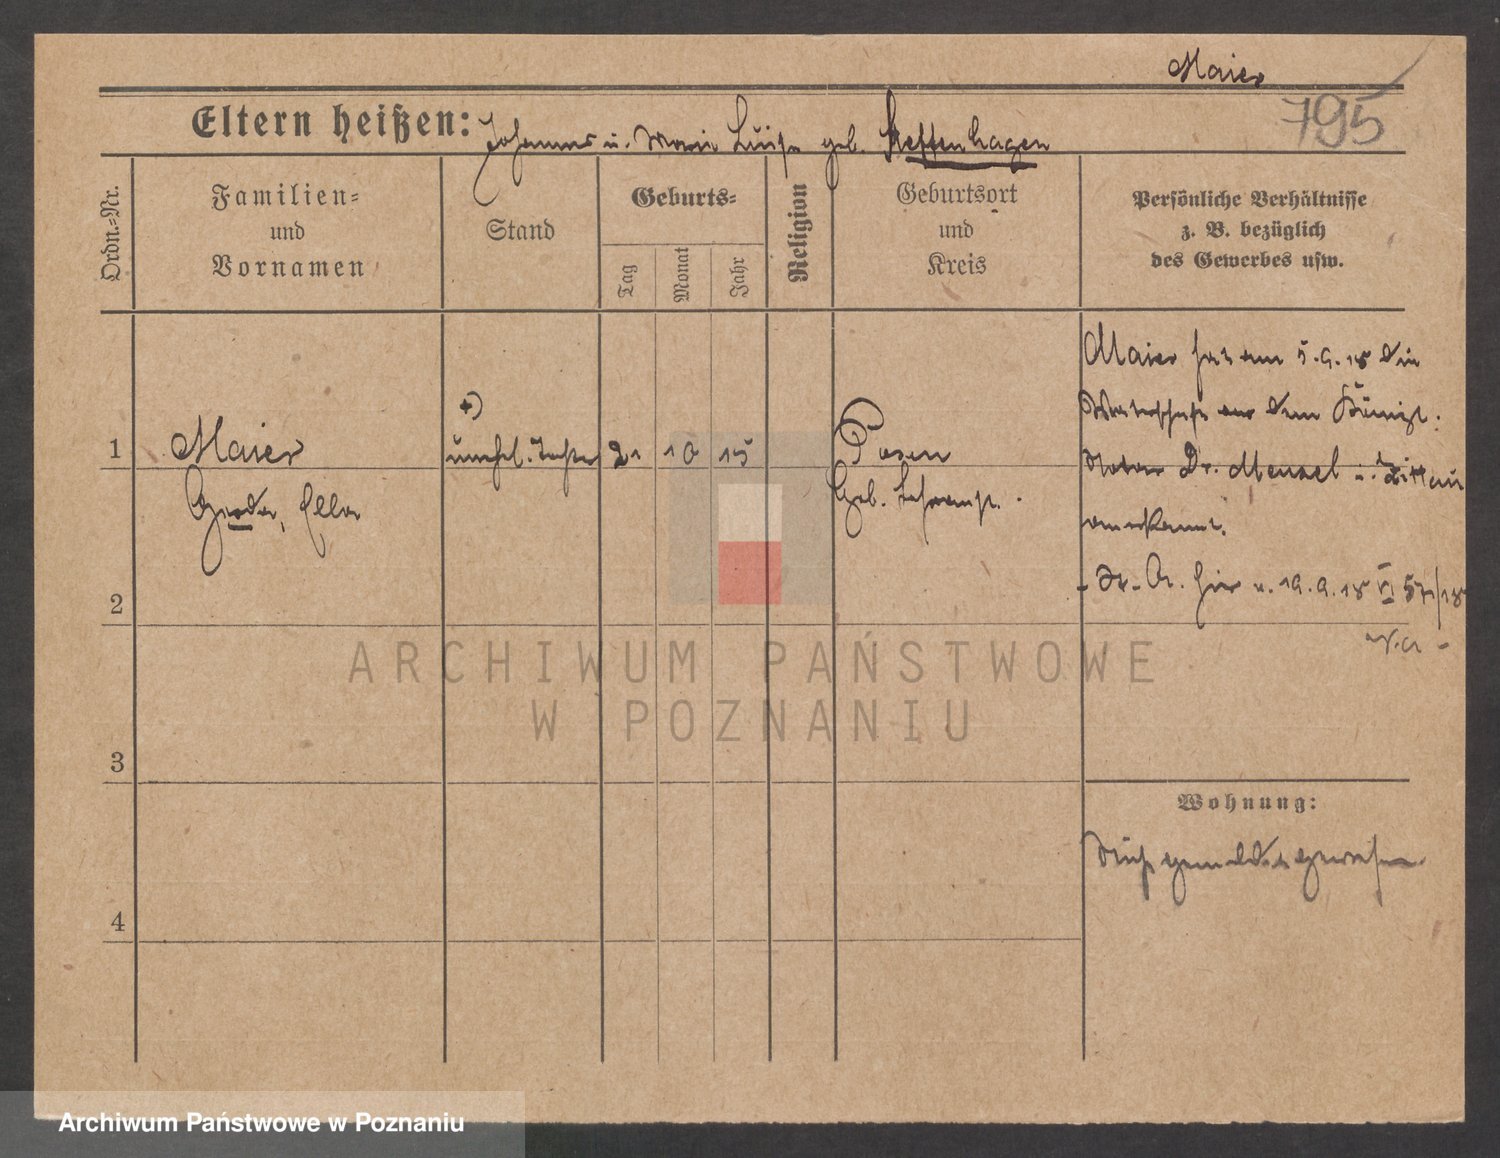 Maier
795
Eltern heißen: Johannes u. Marie Luise geb. Steffenhagen
Ordn.-Nr.
Familien-
und
Vornamen
Stand
Geburts-
Tag
Monat
Jahr
Religion
Geburtsort
und
Kreis
Persönliche Verhältnisse
z. B. bezüglich
des Gewerbes usw.
1
Maier
Gerda, Ella
+)
unehel. Tochter
21
10
15
Posen
Geb. Schwanst.
Maier hat am 5.9.18 die
Vaterschaft vor dem Königl.
Notar Dr. Menzel i. Zittau
anerkannt.
hier v. 19.9.18 VI 57/18
2
3
4
Wohnung:
Nicht gemeldet gewesen
ARCHIWUM PAŃSTWOWE
W POZNANIU
Archiwum Państwowe w Poznaniu